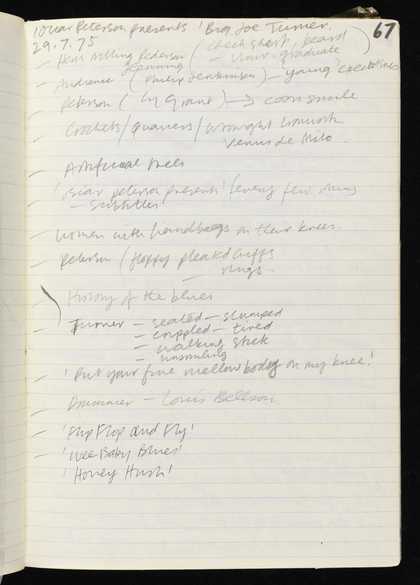 67
Oscar Peterson presents 'Big Joe Turner
29.7.75
check shirt, beard
Peterson
Audience (Philip Jenkinson) - young
Peterson (Cy Grant) →
Crockets / quavers / wrought ironwork
Venus de Milo
Artificial trees
'Oscar peterson presents' (every few mins
- Subtitles'
Women with handbags on their knees
Peterson (floppy pleated cuffs
- rings -
History of the blues
Turner - seated - slumped
- crippled - tired
- walking stick
- unsmiling
'Put your fine mellow body on my knee!'
Drummer - Louis Bellson
'Flip Flop and Fly'
'Wee Baby Blues'
'Honey Hush'